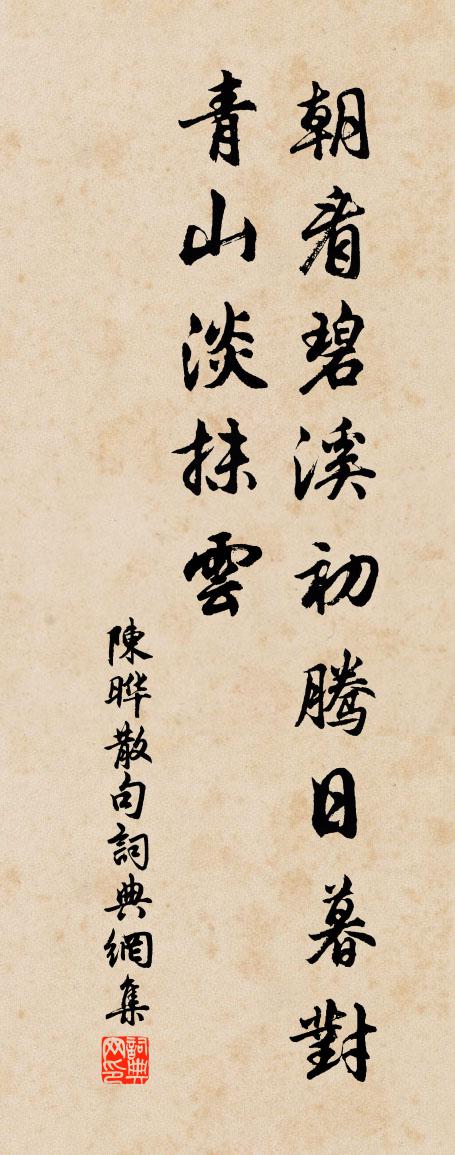 朝看碧溪初騰日暮對
青山淡抹雲
陳晔散句詞典網集
詞典网印